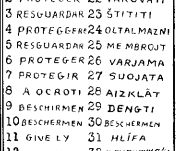 3 RESGUARDAR 23 ŠTITITI
4 PROTEGGERE 24 OLTALMAZNI
5 RESGUARDAR 25 MEMBROJT
6 PROTEGER 26 VARJAMA
7 PROTEGIR 27 SUOJATA
8 A OCROTI 28 AIZKLĀT
9 BESCHIRMEN 29 DENGTI
10 BESCHERMEN 30 BESCHERMEN
11 GIVE LY 31 HLÍFA